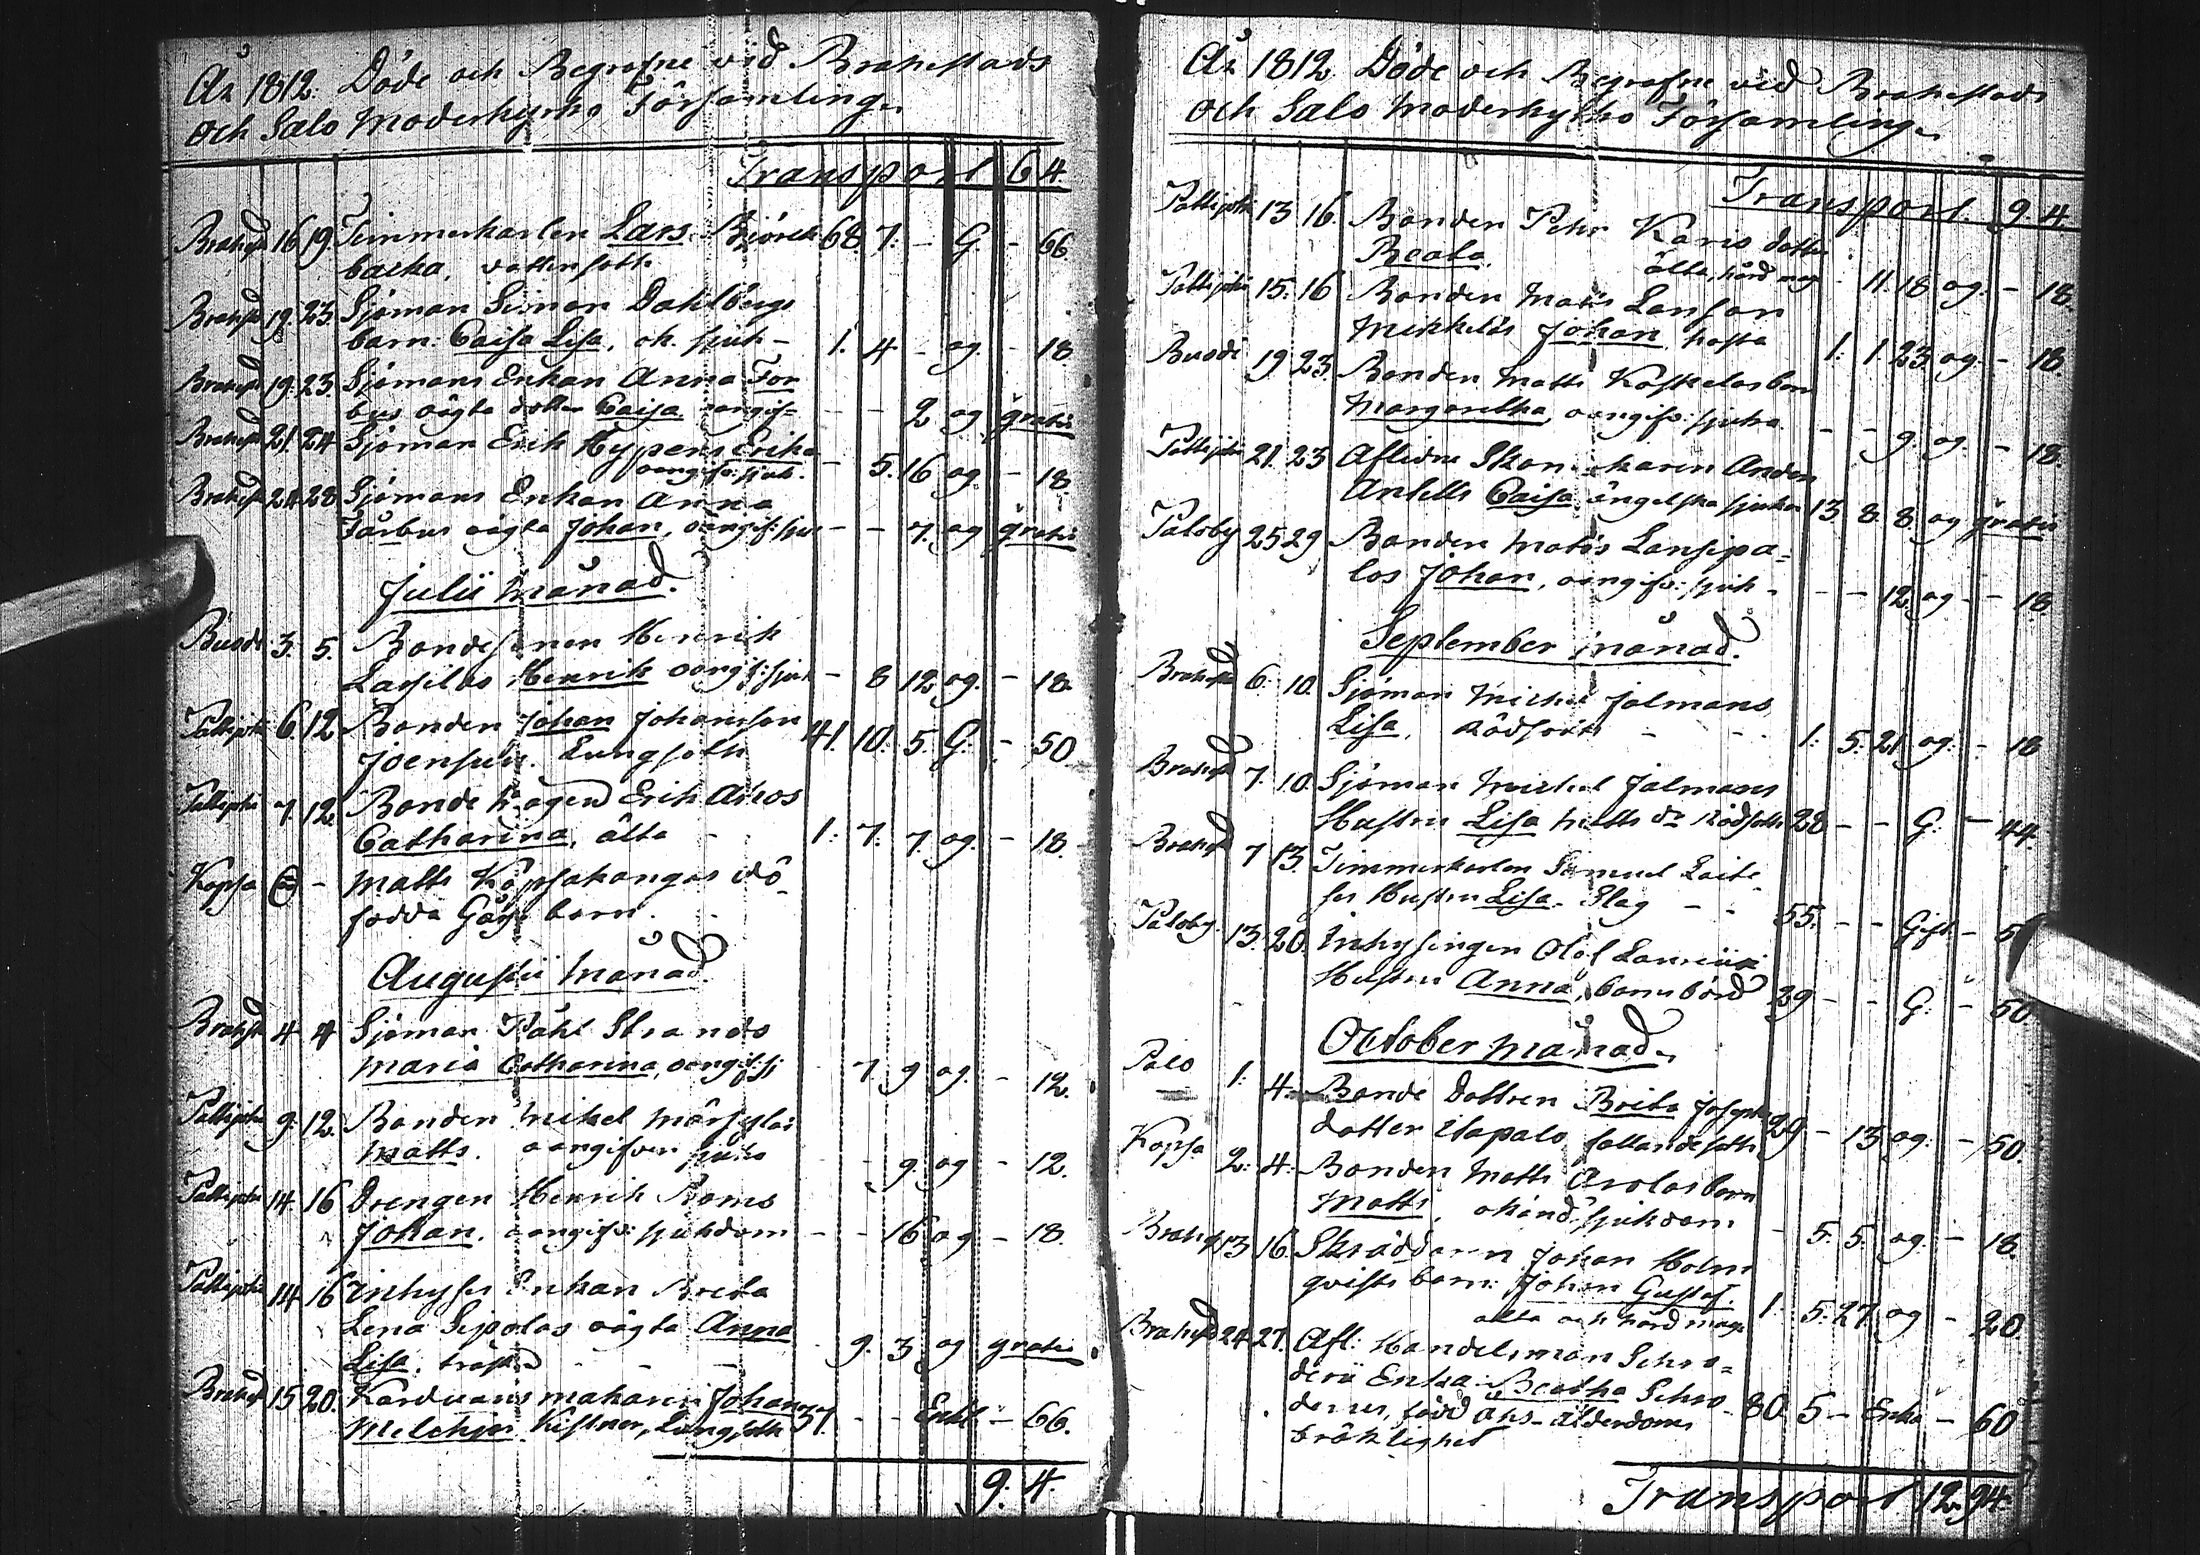 År 1812. Döde och Begrafne vid Brahestads
och Salo Moderkyrko Församling.
Transport 64.
Brahest 16 19. Timmerkarlen Lars Björck 68. 7. - G. - 66
backa, vattensott
Brahest 19. 23. Sjöman Simon Dahlbergs
barn. Caisa Lisa, ok. sjuk - 1. 4 - og - 18
Brahest 19. 23. Sjömans Enkan Anna For
bus oägta dotter Caisa oangif= - - 2 og gratis
Brahest 21. 24 Sjöman Erik Hypens Erika
oangifv: sjuk. - 5. 16 og - 18.
Brahest 24 28 Sjömans Enkan Anna
Farbus oägta Johan, oangif: sju - - 7. og gratis
Julii Månad.
Buode 3. 5. Bondesonen Henrik
Lassilas Henrik oangif: sjuk - 8 12 og. - 18.
Pattijoki 6. 12 Bonden Johan Johansson
Joensuu. Lungsott 41. 10. 5. G. - 50.
Pattijoki 7. 12. Bonde Mågen Erik Ahos
Catharina, älta - 1: 7. 7. og. - 18.
Kopsa - Matts Kopsakangas dö-
födda Gåsse barn.
Augusti Månad.
Brahest 4 4 Sjöman Påhl Strands
Maria Catharina, oangif: sj - 7. 9 og. - 12.
Pattijoki 9. 12. Bonden Mikel
Matts. oangifven sjuko - - 9. og - 12.
Pattijoki 14. 16 Drengen Henrik Roms
Johan. oangifv: sjukdom - - 16 og - 18.
Pattijoki 14 16 Inhyses Enkan Breta
Lena Sipolas oägta Anna
Lisa, - 9. 3 og gratis
Brahest 15 20. Karduans makaren Johan
Melchior Kistner, Lungsott 57. - - Enkl. - 66.
9. 4.
År 1812 Döde och Begrafne vid Brahestads
och Salo Moderkyrko Församling.
Transport. 9 4.
Pattijoki 13 16. Bonden Pehr Karis dotter
Beata. älta, hård mag - 11. 18 og. - 18.
Pattijoki 15. 16 Bonden Matts Lanson
Mikkeläs Johan, hosta 1. 1. 23 og - 18.
Buode 19 23. Bonden Matts Koskelas barn
Margaretha, oangifv: sjuka - - 9. og. - 18.
Pattijoki 21. 23 Aflidne Skomakaren Anders
Antells Caisa engelska sjukan 13 8. 8. og gratis
Paloby 25 29 Bonden Matts Lansipa=
los Johan, oangifv: sjuk - - - 12. og - - 18
September Månad.
Brahest 6. 10. Sjöman Michel Jalmans
Lisa, Rödsott - - 1. 5. 21 og. - 18
Brahest 7. 10. Sjöman Michel Jalmans
Hustru Lisa Matts dr Rödsott 28 - - G. - 44.
Brahest 7 13. Timmerkarlen Samuel Laite
ses Hustru Lisa. Slag - - 55. - - Gift. -
Paloby. 13. 20. Inhysingen Olof
Hustru Anna, barnsbörd 29 - - G. - 50
October Månad.
Palo 1. 4 Bonde Dottren Brita Josephs
dotter Itapalo, fallandesott 29 - 13 og. - 50.
Kopsa 2. 4. Bonden Matts Arolas barn
Matts, okänd sjukdom - 5. 5. og. - 18.
Brahest 13 16. Skräddarn Johan Holm
qvists barn: Johan Gustaf.
älta och hård mage 1. 5. 27. og - 20
Brahest 24 27. Afl: Handelsman Schro=
derii Enka: Beatha Schro
derus, född Ahs - ålderdoms 80. 5 - Enka - 60
bräklighet
Transport 12. 94.